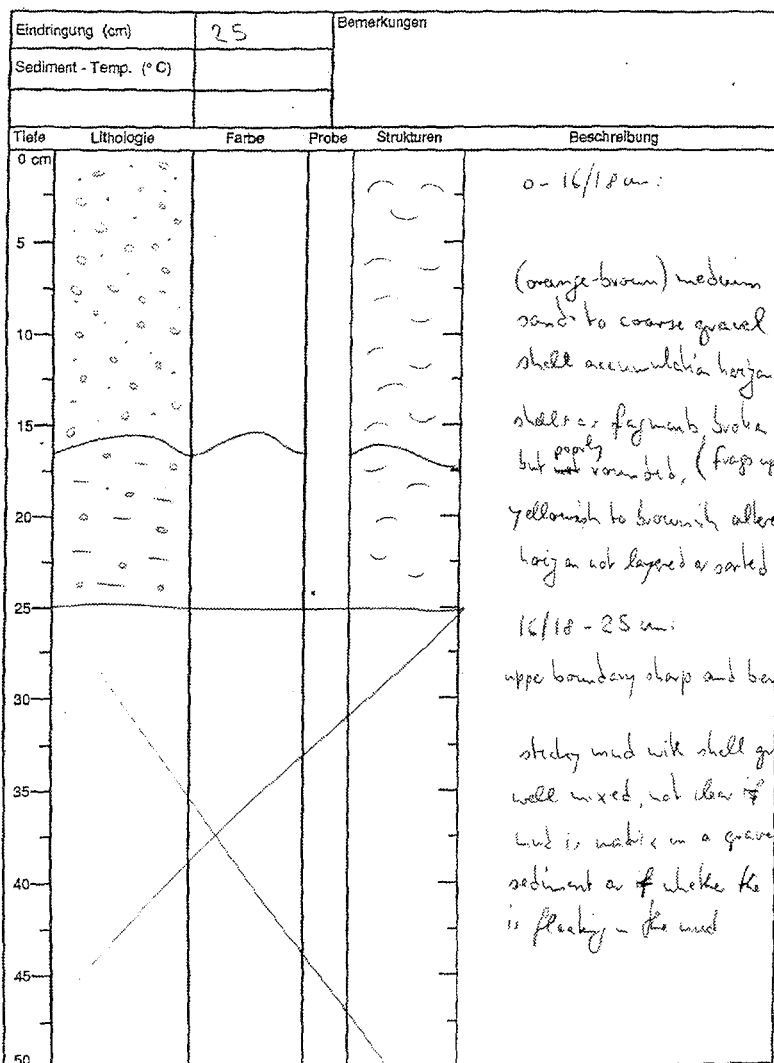 Eindringung (cm) 25 Bemerkungen
Sediment - Temp. (° C)
Tiefe Lithologie Farbe Probe Strukturen Beschreibung
0 cm
5
10
15
20
25
30
35
40
45
50
0 - 16/18 cm:
(orange-brown) medium
sand to coarse gravel
shell accumulation horizon
shells as fragments, broken
but poorly rounded, (frags up
yellowish to brownish altere
horizon not layered or sorted
16/18 - 25 cm:
upper boundary sharp and
sticky mud with shell
well mixed, not clear if
mud is matrix in a grave
sediment or if whether the
is floating in the mud